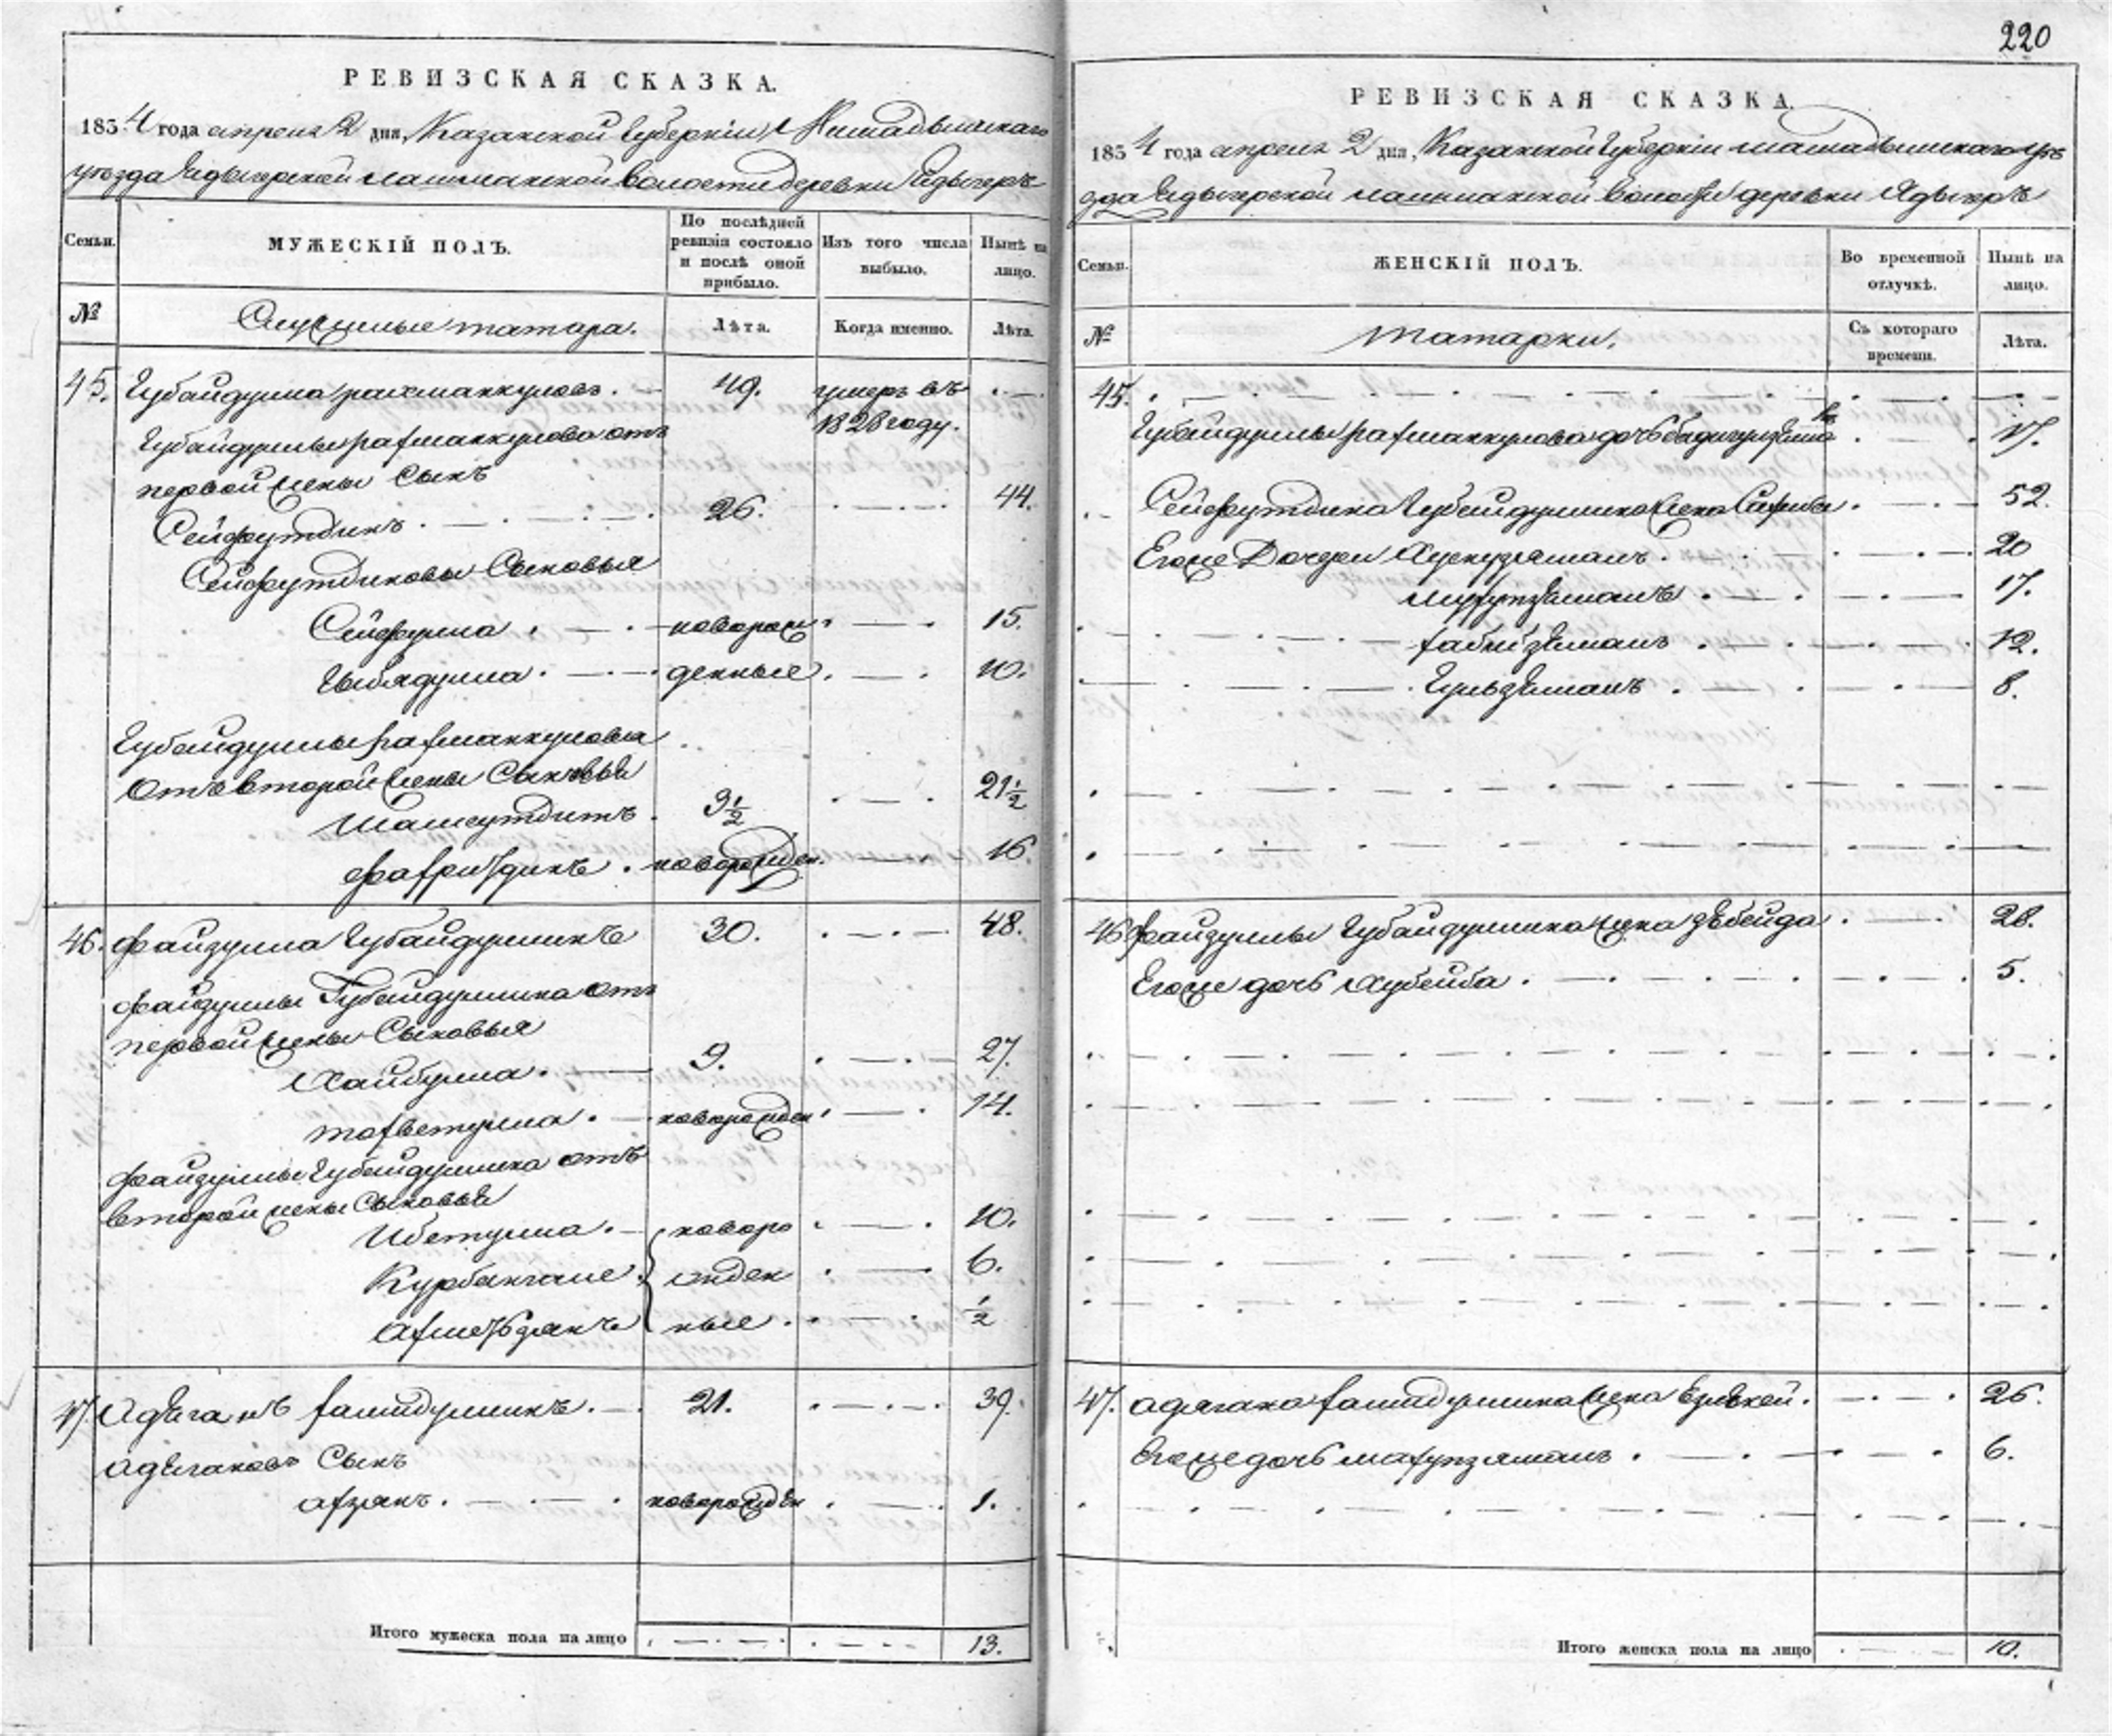 220
РЕВИЗСКАЯ СКАЗКА.
1854 года апреля 2 дня, Казанской Губерніи Мамадышскаго
уѣзда Ядыгерской лашманской волости деревни Ядыгеръ
Семьи.
МУЖЕСКІЙ ПОЛЪ.
По послѣдней ревизіи состояло и послѣ оной прибыло.
Изъ того числа выбыло.
Нынѣ на лицо.
№
Служилые татара.
Лѣта.
Когда именно.
Лѣта.
45. Губайдулла рахманкуловъ. 49. умеръ въ
1828 году.
Губайдуллы рахманкулова отъ
первой жены сынъ
Сейфутдинъ. 26. 44.
Сейфутдиновы Сыновья
Сейфулла новорож 15.
Гибядулла денные. 10.
Губайдуллы рахманкулова
отъ второй жены Сыновья
Шамсутдинъ 3½ 21½
Фахриздинъ новорожден. 16.
46. Файзулла Губайдуллинъ 30. 48.
Файзуллы Губейдуллина отъ
первой жены Сыновья
Хайбулла. 9. 27.
Тохветулла. новорожден 14.
Файзуллы Губейдуллина отъ
второй жены Сыновья
Ибетулла. новоро 10.
Курбангале жден 6.
Ахметзянъ ные. ½
47. Адѣганъ Хамидуллинъ. 21. 39.
Адѣгановъ Сынъ
Ахзянъ. новорожден 1.
Итого мужеска пола на лицо 13.
РЕВИЗСКАЯ СКАЗКА.
1854 года апреля 2 дня, Казанской Губерніи мамадышскаго уѣ
зда Ядыгерской лашманской волости деревни Ядыгеръ
Семьи.
ЖЕНСКІЙ ПОЛЪ.
Во временной отлучкѣ.
Нынѣ на лицо.
№
Татарки.
Съ котораго времени.
Лѣта.
45.
Губейдуллы рахманкулова дочь 17.
Сейфутдина Губейдуллина жена Сахиба. 52.
Егоже Дочери Хуснузямалъ. 20
17.
Хабибзямалъ 12.
Гульзямалъ 8.
46. Файзуллы Губайдуллина жена Зѣбейда 28.
Егоже дочь Хубейба. 5.
47. Адягана Хамидуллина жена 26.
Егоже дочь Махупзямалъ 6.
Итого женска пола на лицо 10.